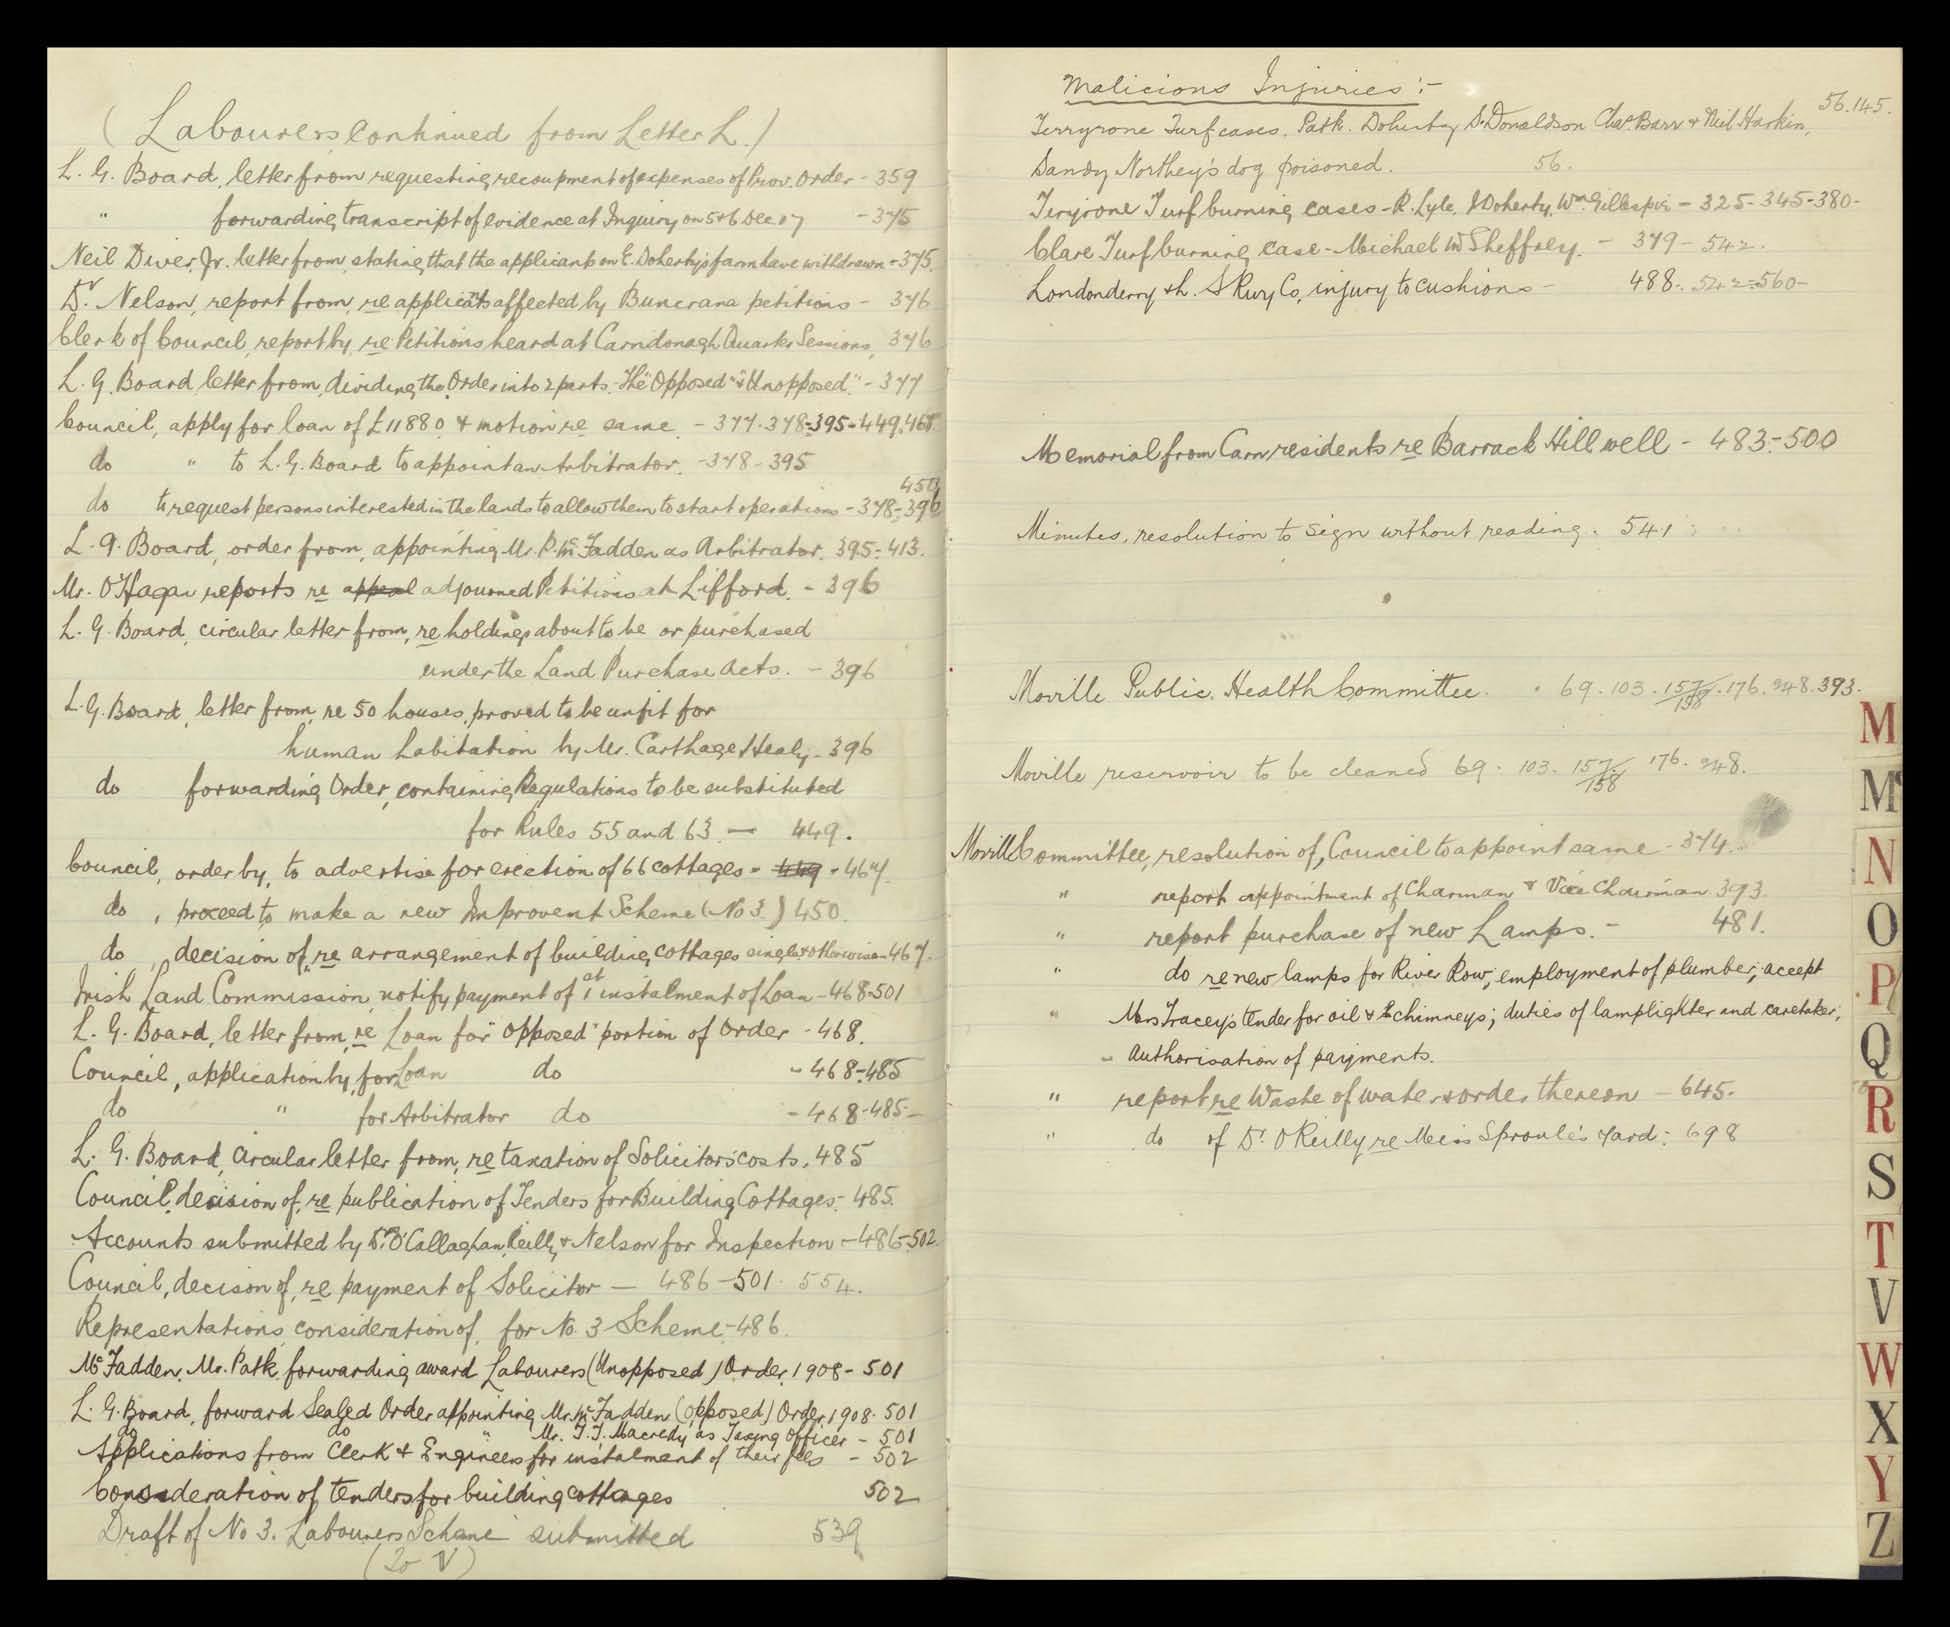 ( Labourers, continued from Letter L. )
L. G. Board, letter from requesting recoupment of expenses of Prov. Order - 359
" forwarding transcript of evidence at Inquiry on 5 & 6 Dec 07 - 375
Neil Diver, Jr. letter from, stating that the applicants on E. Doherty's farm have withdrawn - 375.
Dr. Nelson, report from, re applicants affected by Buncrana petitions - 376
Clerk of Council, report by, re Petitions heard at Carndonagh Quarter Sessions, 376
L. G. Board, letter from, dividing the Order into 2 parts - The "Opposed" & "Unopposed" - 377
Council, apply for loan of £11880 & motion re same. - 377-378-395-449.468.
do " to L. G. Board to appoint an Arbitrator. - 378-395
450
do to request persons interested in the lands to allow them to start operations - 378-396
L. G. Board, order from, appointing Mr. P. McFadden as Arbitrator. 395-413.
Mr. O'Hagan reports re appeal adjourned Petitions at Lifford. - 396
L. G. Board, circular letter from, re holdings about to be or purchased
under the Land Purchase Acts. - 396
L. G. Board, letter from, re 50 houses, proved to be unfit for
human habitation by Mr. Carthage Healy - 396
do forwarding Order, containing Regulations to be substituted
for Rules 55 and 63 — 449.
Council, order by, to advertise for erection of 66 cottages - 449 - 467.
do , proceed to make a new Improvent Scheme (No 3.) 450.
do , decision of, re arrangement of building cottages single & otherwise - 467.
Irish Land Commission, notify payment of 1st instalment of Loan - 468-501
L. G. Board, letter from, re Loan for "opposed" portion of order - 468.
Council, application by, for Loan do - 468-485
do " for Arbitrator do - 468-485-
L. G. Board, Circular letter from, re taxation of Solicitors' costs, 485
Council, decision of, re publication of Tenders for Building Cottages - 485.
Accounts submitted by Drs O'Callaghan, Reilly & Nelson for Inspection - 486-502.
Council, decison of, re payment of Solicitor — 486-501. 554.
Representations, consideration of, for No. 3 Scheme - 486.
McFadden, Mr. Patk. forwarding award Labourers (Unopposed) Order. 1908 - 501
L. G. Board, forward Sealed Order appointing Mr. McFadden (opposed) Order, 1908. 501
do do " Mr. T. J. Macredy as Taxing Officer - 501
Applications from Clerk & Engineers for instalment of their fees - 502
Consideration of tenders for building cottages 502
Draft of No 3. Labourers Scheme submitted 539
(To V)
Malicious Injuries :-
Terryrone Turf cases. Patk. Doherty D. Donaldson Chas. Barr & Neil Harkin, 56.145.
Sandy Northey's dog poisoned. 56.
Teryrone Turf burning cases - R. Lyle, J Doherty, Wm. Gillespie - 325-345-380-
Clare Turf burning case - Michael McSheffrey. - 379 - 542.
Londonderry & L. S Rwy Co, injury to cushions - 488. 542-560-
Memorial from Carn residents re Barrack Hill well - 483-500
Minutes, resolution to sign without reading. 541
Moville Public Health Committee. 69. 103. 157/158. 176. 248. 393.
Moville reservoir to be cleaned 69. 103. 157/158 176. 248.
Moville Committee, resolution of, Council to appoint same - 374.
" report appointment of Charman & Vice Chairman 393.
" report purchase of new Lamps. - 481.
" do re new lamps for River Row; employment of plumber; accept
" Mrs Tracey's tender for oil & chimneys; duties of lamplighter and caretaker;
- authorisation of payments.
" report re Waste of water & order thereon - 645.
" do of Dr. O'Reilly re Miss Sproule's Yard. 698
M
Mc
N
O
P
Q
R
S
T
V
W
X
Y
Z